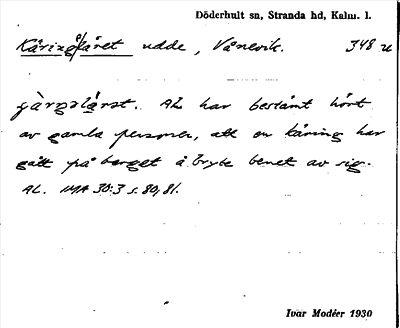 Döderhult sn, Stranda hd, Kalm. l.
Käringlåret udde, Vånevik. 348 u
AL har bestämt hört
av gamla personer, att en käring har
gått på berget å bryte benet av sig.
AL. IMA 30:3 s. 80, 81.
Ivar Modéer 1930